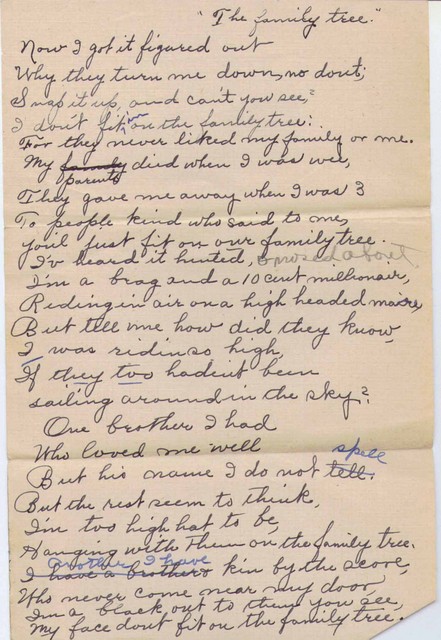 "The family tree."
Now I got it figared out
Why they turn me down, no dout;
Snap it up, and can't you see,?
I don't fit in on the family tree:
For they never liked my family or me.
My family parents died when I was wee,
They gave me away when I was 3
To people kind who said to me,
you'l just fit on our family tree.
I've heard it hinted, & nosed about
I'm a brag and a 10 cent millionair,
Riding in air on a high headed maire
But tell me how did they know,
I was ridin so high,
If they too hadent been
sailing around in the sky?
One brother I had
Who loved me well
But his name I do not tell. spell
But the rest seem to think,
I'm too high hat to be,
Hanging with them on the family tree.
another I have
I have a brothers kin by the score,
Who never come near my door,
I'm a black out to them you see,
My face dont fit on the family tree.